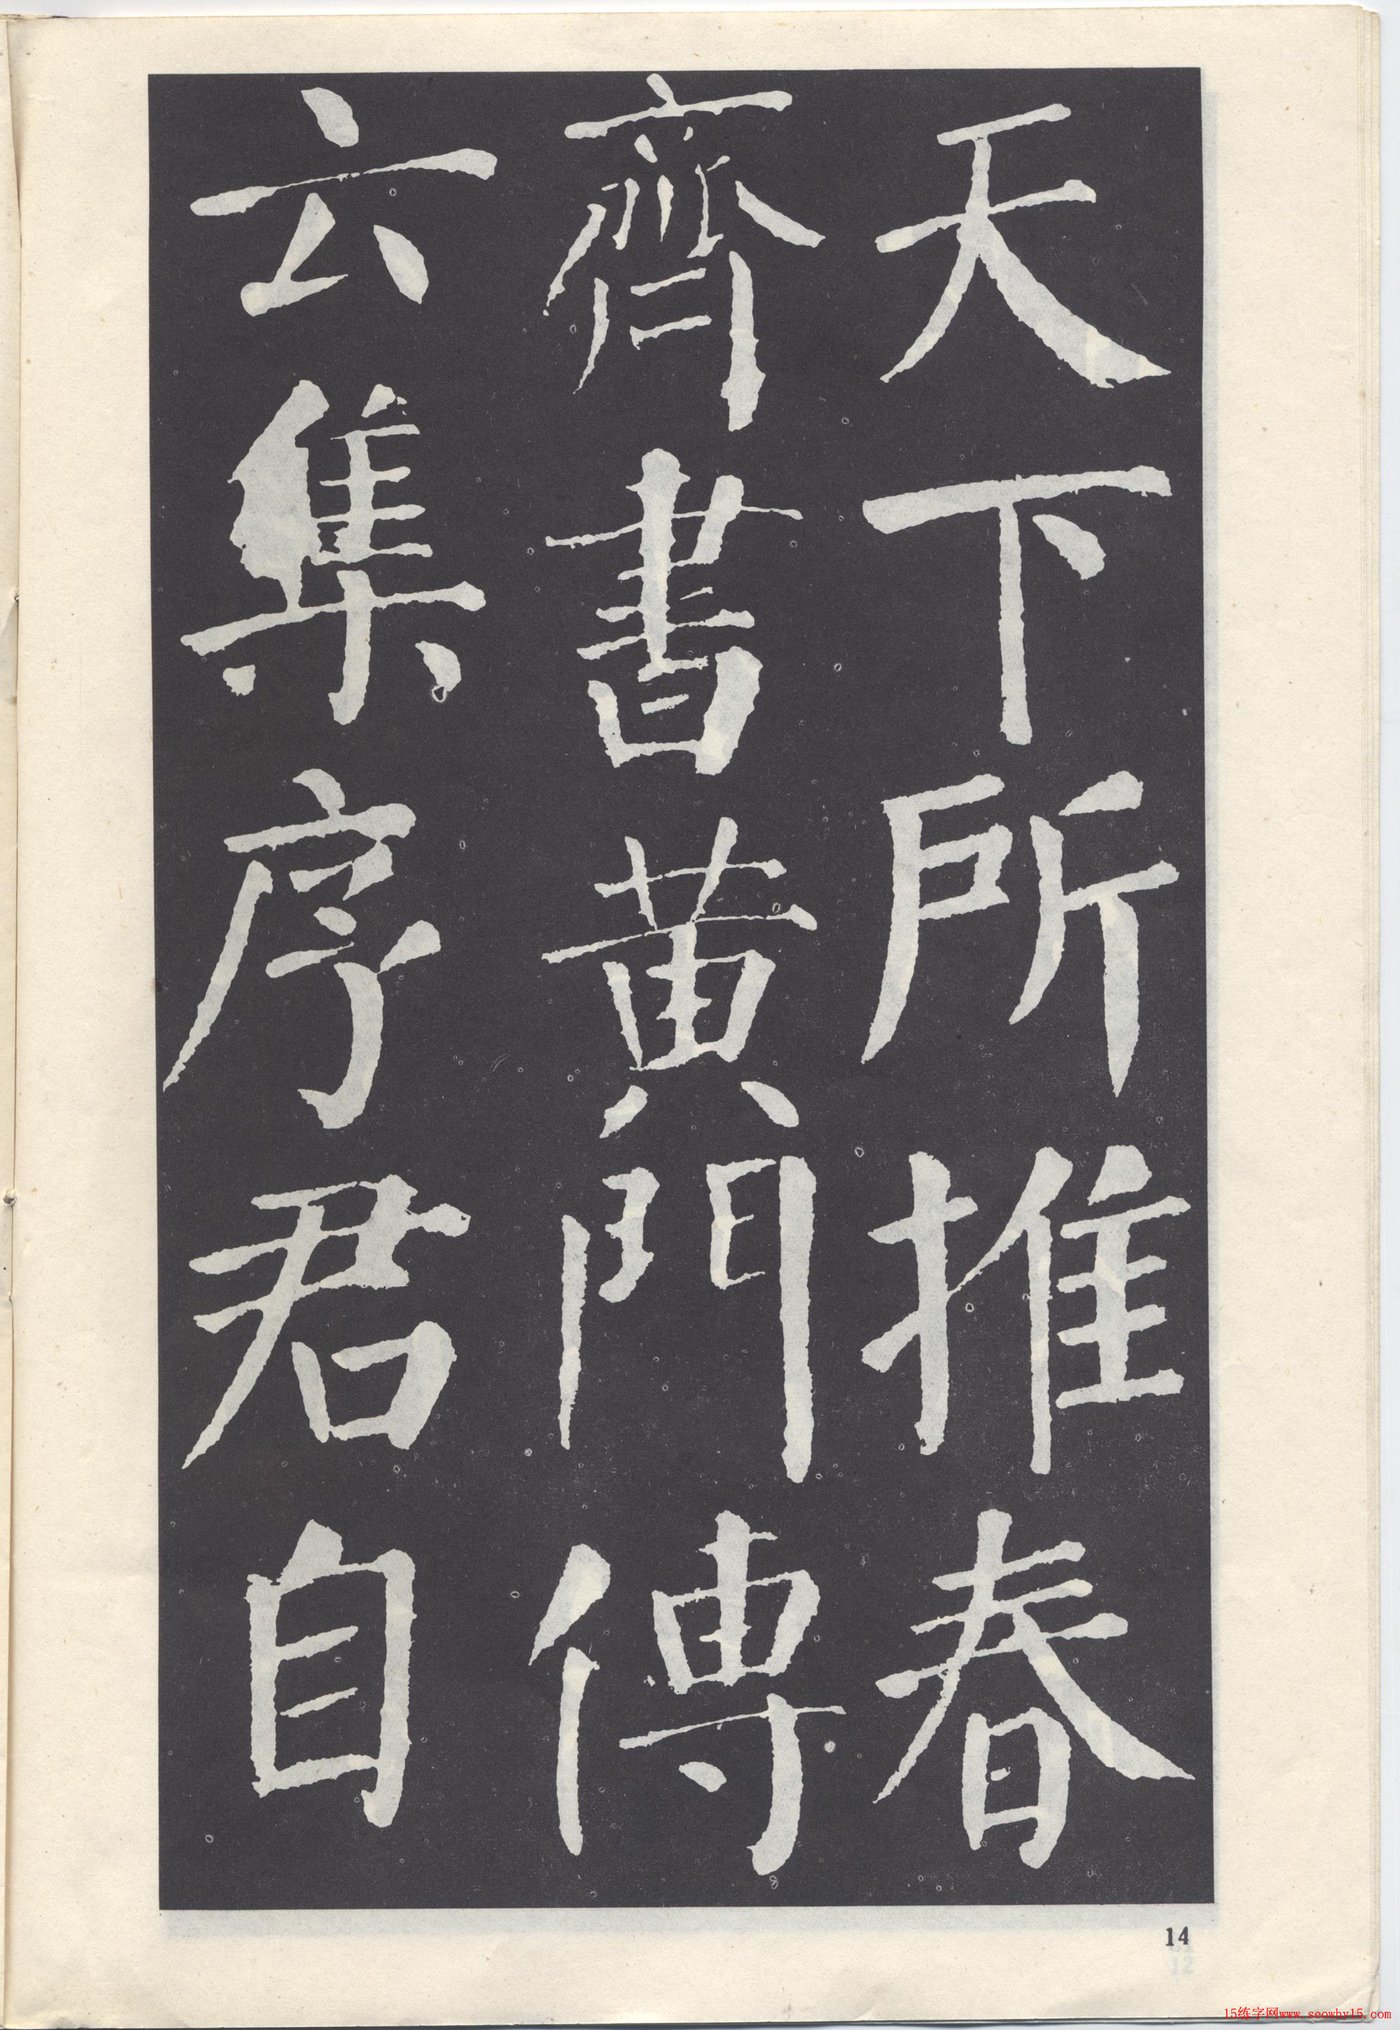 天下所推春
齊書黄門傳
云集序君自
14
12
15练字网www.seowhy15.com